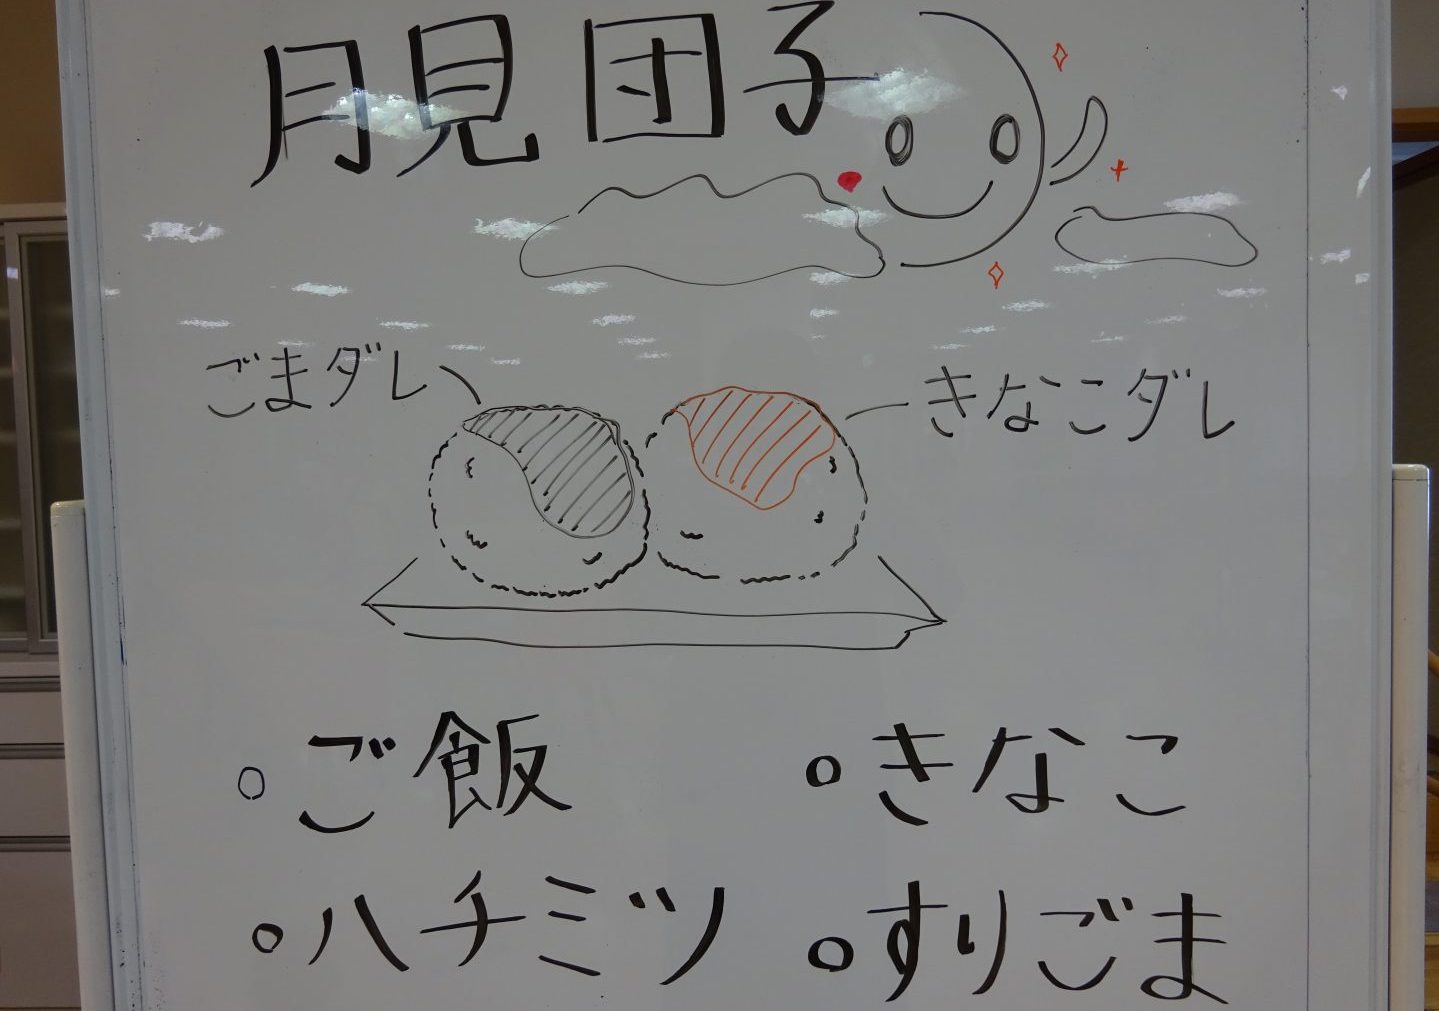 月見団子
ごまダレ
きなこダレ
ご飯
きなこ
ハチミツ
すりごま